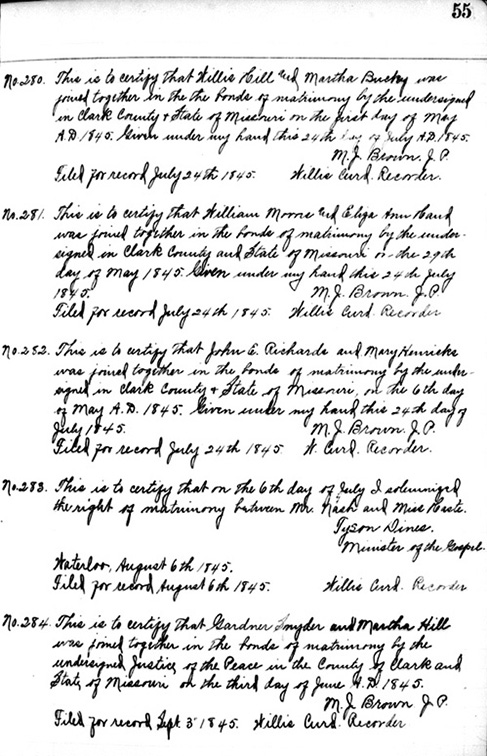 55
No. 280. This is to certify that Willis Hill and Martha Busby was
joined together in the the bonds of matrimony by the undersigned
in Clark County & State of Missouri on the first day of May
A.D. 1845. Given under my hand this 24th day of July A.D. 1845.
M. J. Brown. J. P.
Filed for record July 24th 1845. Willis Curd. Recorder.
No. 281. This is to certify that William Moore and Eliza Ann Hand
was joined together in the bonds of matrimony by the under-
signed in Clark County and State of Missouri on the 29th
day of May 1845. Given under my hand this 24th July
1845. M. J. Brown. J. P.
Filed for record July 24th 1845. Willis Curd. Recorder
No. 282. This is to certify that John E. Richards and Mary Henricks
was joined together in the bonds of matrimony by the under-
signed in Clark County & State of Missouri, on the 6th day
of May A.D. 1845. Given under my hand this 24th day of
July 1845. M. J. Brown. J. P.
Filed for record July 24th 1845. W. Curd. Recorder.
No. 283. This is to certify that on the 6th day of July I solemnized
the right of matrimony between Mr. Nash and Miss Haste.
Tyson Dines.
Minister of the Gospel.
Waterloo, August 6th 1845.
Filed for record August 6th 1845. Willis Curd. Recorder
No. 284. This is to certify that Gardner Snyder and Martha Hill
was joined together in the bonds of matrimony by the
undersigned Justice of the Peace in the County of Clark and
State of Missouri on the third day of June A.D. 1845.
M. J. Brown J. P.
Filed for record Sept 3 1845. Willis Curd. Recorder